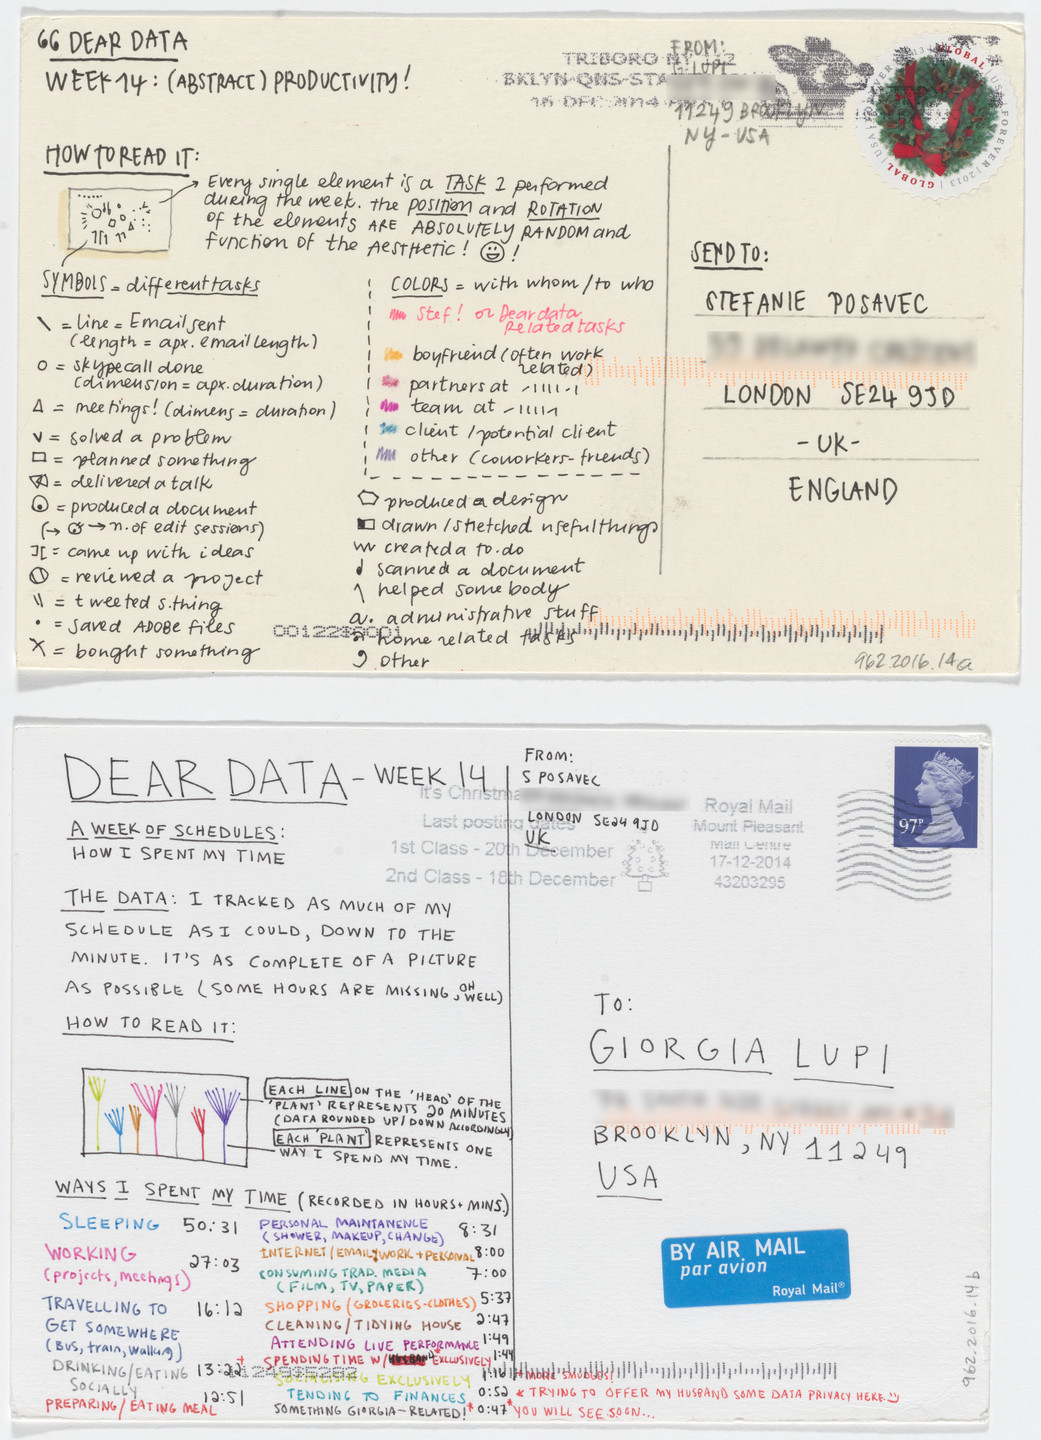 DEAR DATA
WEEK 14: (ABSTRACT) PRODUCTIVITY!
FROM:
G. LUPI
11249 BROOKLYN
NY - USA
TRIBORO NY 112
BKLYN-QNS-STA
16 DEC 2014
GLOBAL | USA | FOREVER | 2013
HOW TO READ IT:
Every single element is a TASK I performed
during the week. the POSITION and ROTATION
of the elements ARE ABSOLUTELY RANDOM and
function of the AESTHETIC! !
SYMBOLS = different tasks
\ = line = Email sent
(length = apx. email length)
O = skype call done
(dimension = apx. duration)
Δ = meetings! (dimens = duration)
v = solved a problem
□ = planned something
= delivered a talk
= produced a document
(→ → n. of edit sessions)
][ = came up with ideas
= reviewed a project
\\ = tweeted s.thing
• = saved ADOBE files
X = bought something
COLORS = with whom / to who
Stef! or Dear data
Related tasks
boyfriend (often work
related)
partners at
team at
client / potential client
other (coworkers - friends)
produced a design
drawn / stretched useful things
created a to.do
scanned a document
helped somebody
a. administrative stuff
home related tasks
other
SEND TO:
STEFANIE POSAVEC
LONDON SE24 9JD
- UK -
ENGLAND
962.2016.14a
DEAR DATA - WEEK 14
A WEEK OF SCHEDULES:
HOW I SPENT MY TIME
THE DATA: I TRACKED AS MUCH OF MY
SCHEDULE AS I COULD, DOWN TO THE
MINUTE. IT'S AS COMPLETE OF A PICTURE
AS POSSIBLE (SOME HOURS ARE MISSING, OH WELL)
HOW TO READ IT:
EACH LINE ON THE 'HEAD' OF THE
'PLANT' REPRESENTS 20 MINUTES
(DATA ROUNDED UP/DOWN ACCORDINGLY)
EACH 'PLANT' REPRESENTS ONE
WAY I SPEND MY TIME.
WAYS I SPENT MY TIME (RECORDED IN HOURS + MINS.)
SLEEPING 50:31
WORKING
(projects, meetings) 27:03
TRAVELLING TO 16:12
GET SOMEWHERE
(Bus, train, walking)
DRINKING/EATING 13:22
SOCIALLY
PREPARING/EATING MEAL 12:51
PERSONAL MAINTANENCE
(SHOWER, MAKEUP, CHANGE) 8:31
INTERNET/EMAIL, WORK + PERSONAL 8:00
CONSUMING TRAD. MEDIA 7:00
(FILM, TV, PAPER)
SHOPPING (GROCERIES-CLOTHES) 5:37
CLEANING/TIDYING HOUSE 2:47
ATTENDING LIVE PERFORMANCE 1:49
*SPENDING TIME W/ HUSBAND* EXCLUSIVELY 1:44
SOCIALISING EXCLUSIVELY 1:16
TENDING TO FINANCES 0:52
SOMETHING GIORGIA-RELATED!* 0:47
*MORE SMUDGES!
* TRYING TO OFFER MY HUSBAND SOME DATA PRIVACY HERE
*YOU WILL SEE SOON...
FROM:
S POSAVEC
LONDON SE24 9JD
UK
It's Christmas
Last posting dates
1st Class - 20th December
2nd Class - 18th December
Royal Mail
Mount Pleasant
Mail Centre
17-12-2014
43203295
97P
TO:
GIORGIA LUPI
BROOKLYN, NY 11249
USA
BY AIR MAIL
par avion
Royal Mail®
962.2016.14b